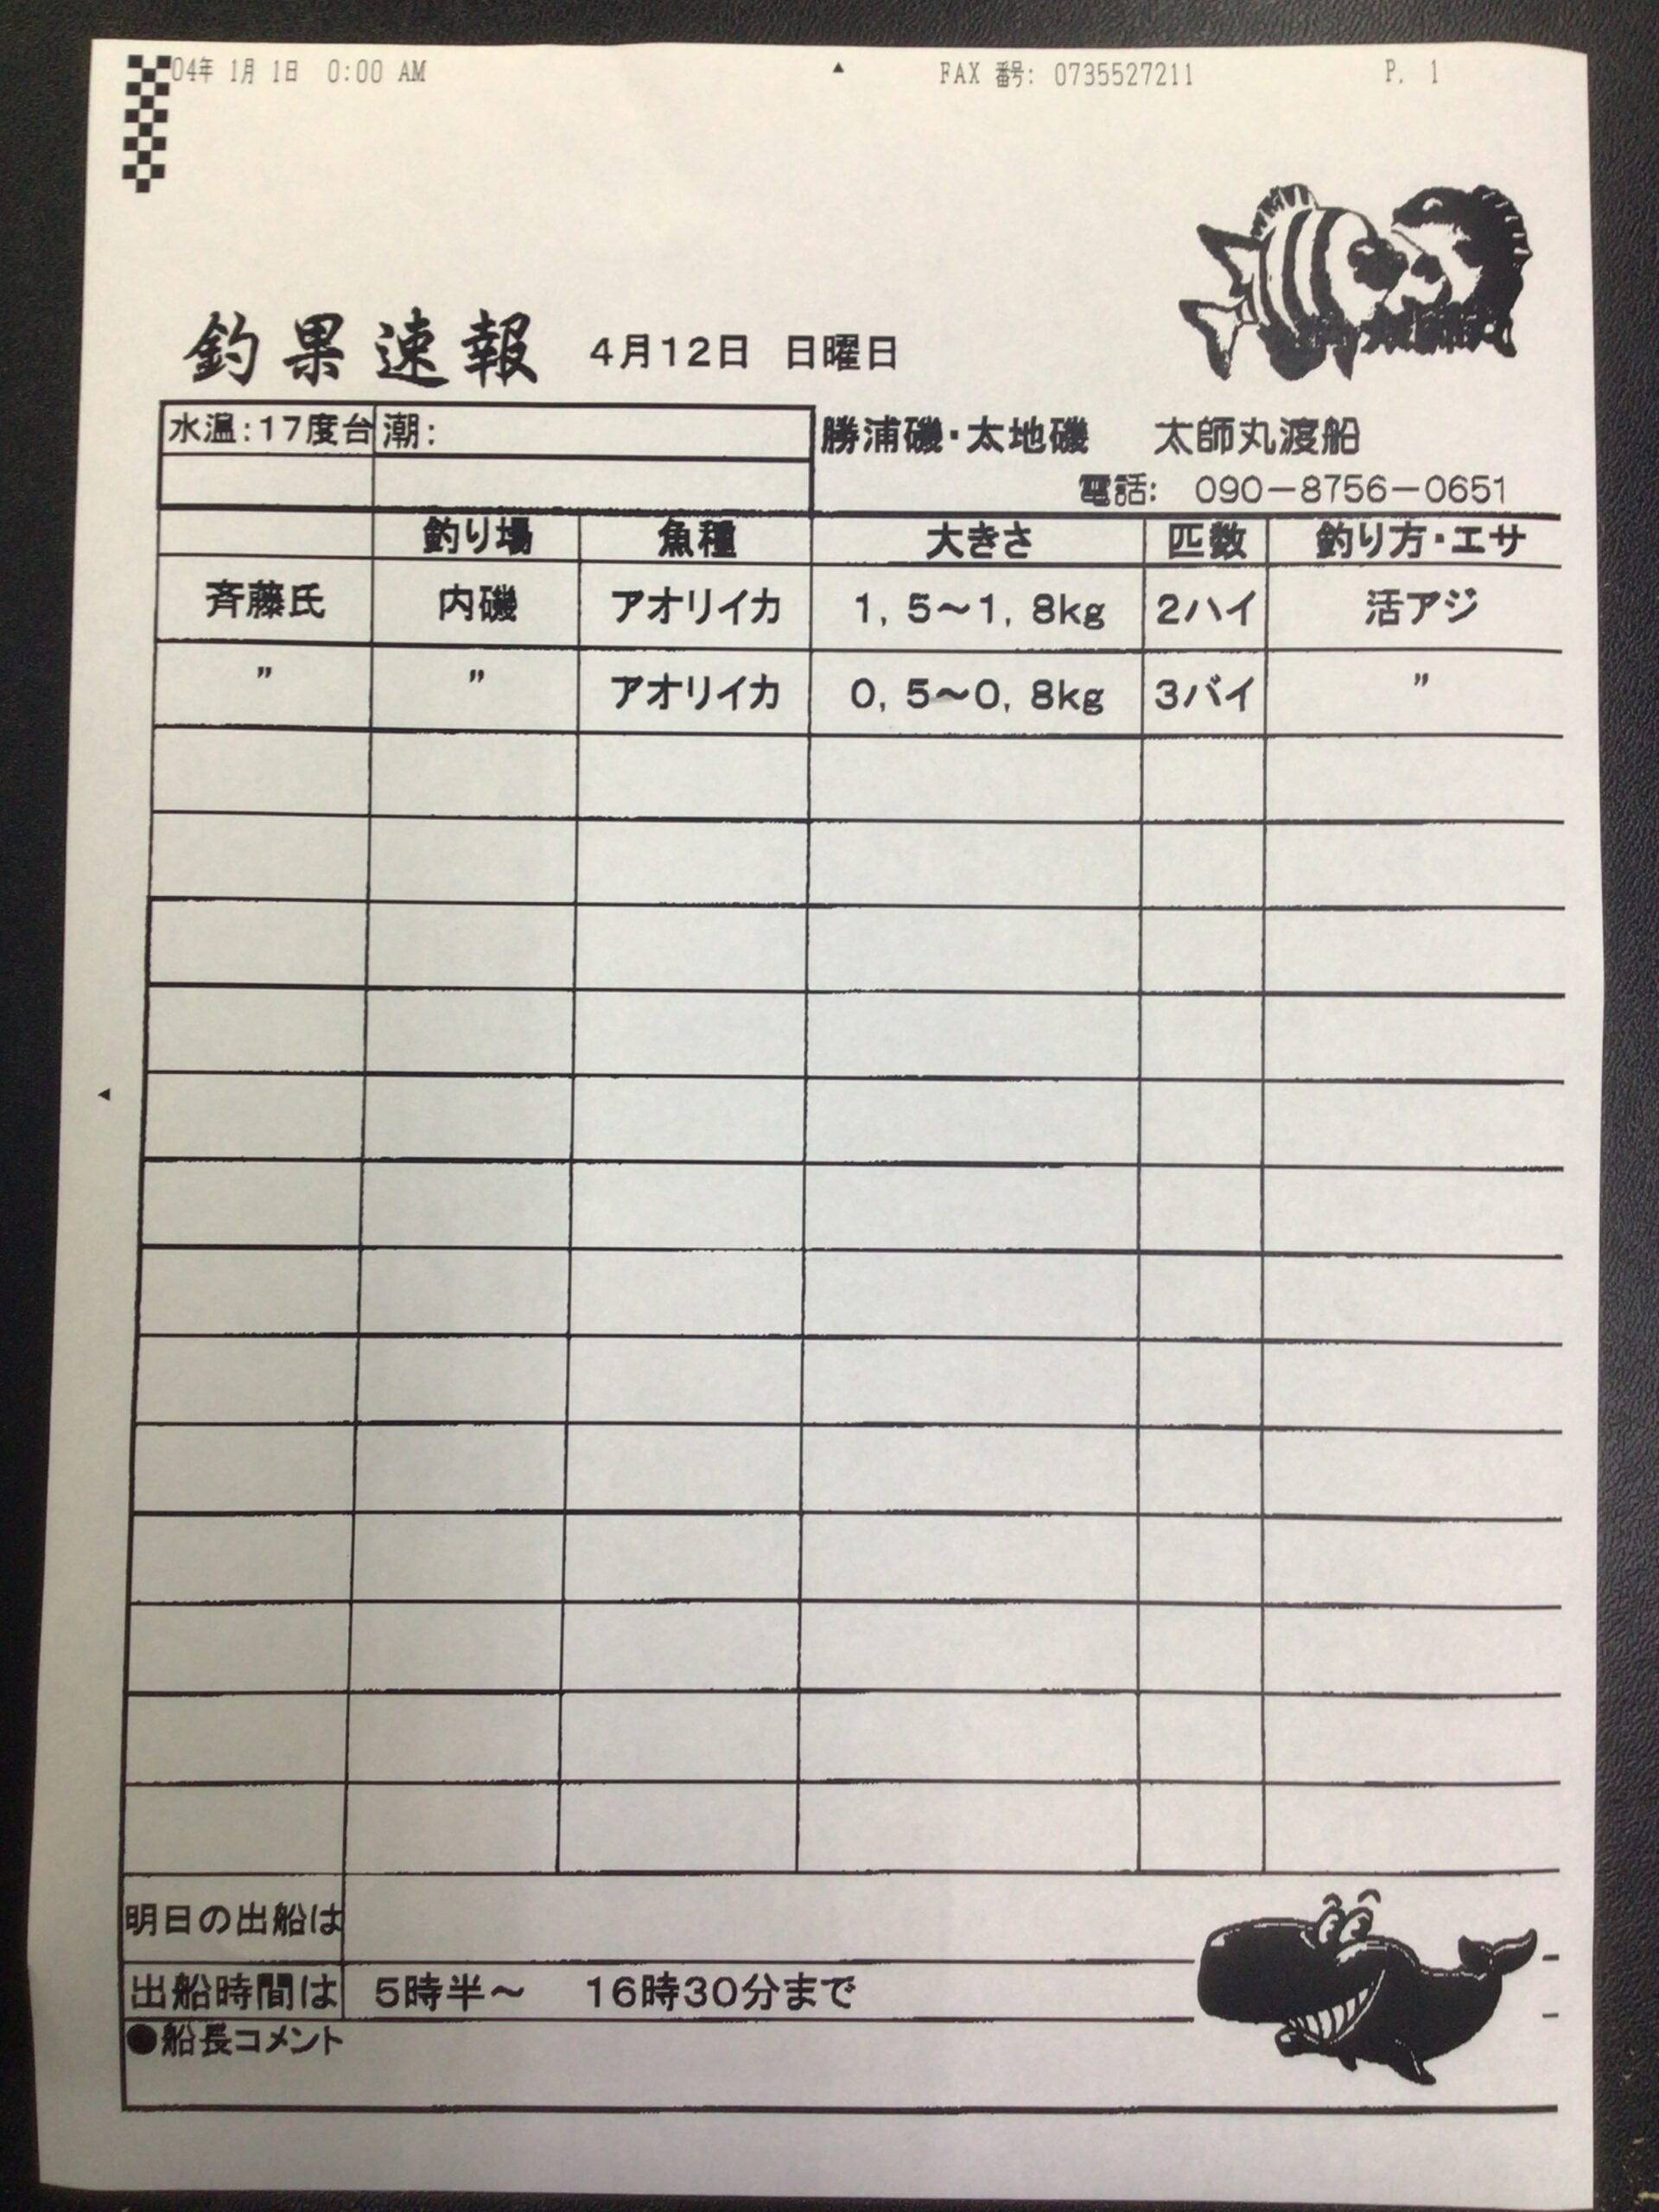 04年 1月 1日 0:00 AM FAX 番号: 0735527211 P. 1
釣果速報 4月12日 日曜日
水温:17度台 潮: 勝浦磯・太地磯 太師丸渡船
電話: 090-8756-0651
釣り場 魚種 大きさ 匹数 釣り方・エサ
斉藤氏 内磯 アオリイカ 1, 5～1, 8kg 2ハイ 活アジ
〃 〃 アオリイカ 0, 5～0, 8kg 3バイ 〃
明日の出船は
出船時間は 5時半～ 16時30分まで
●船長コメント